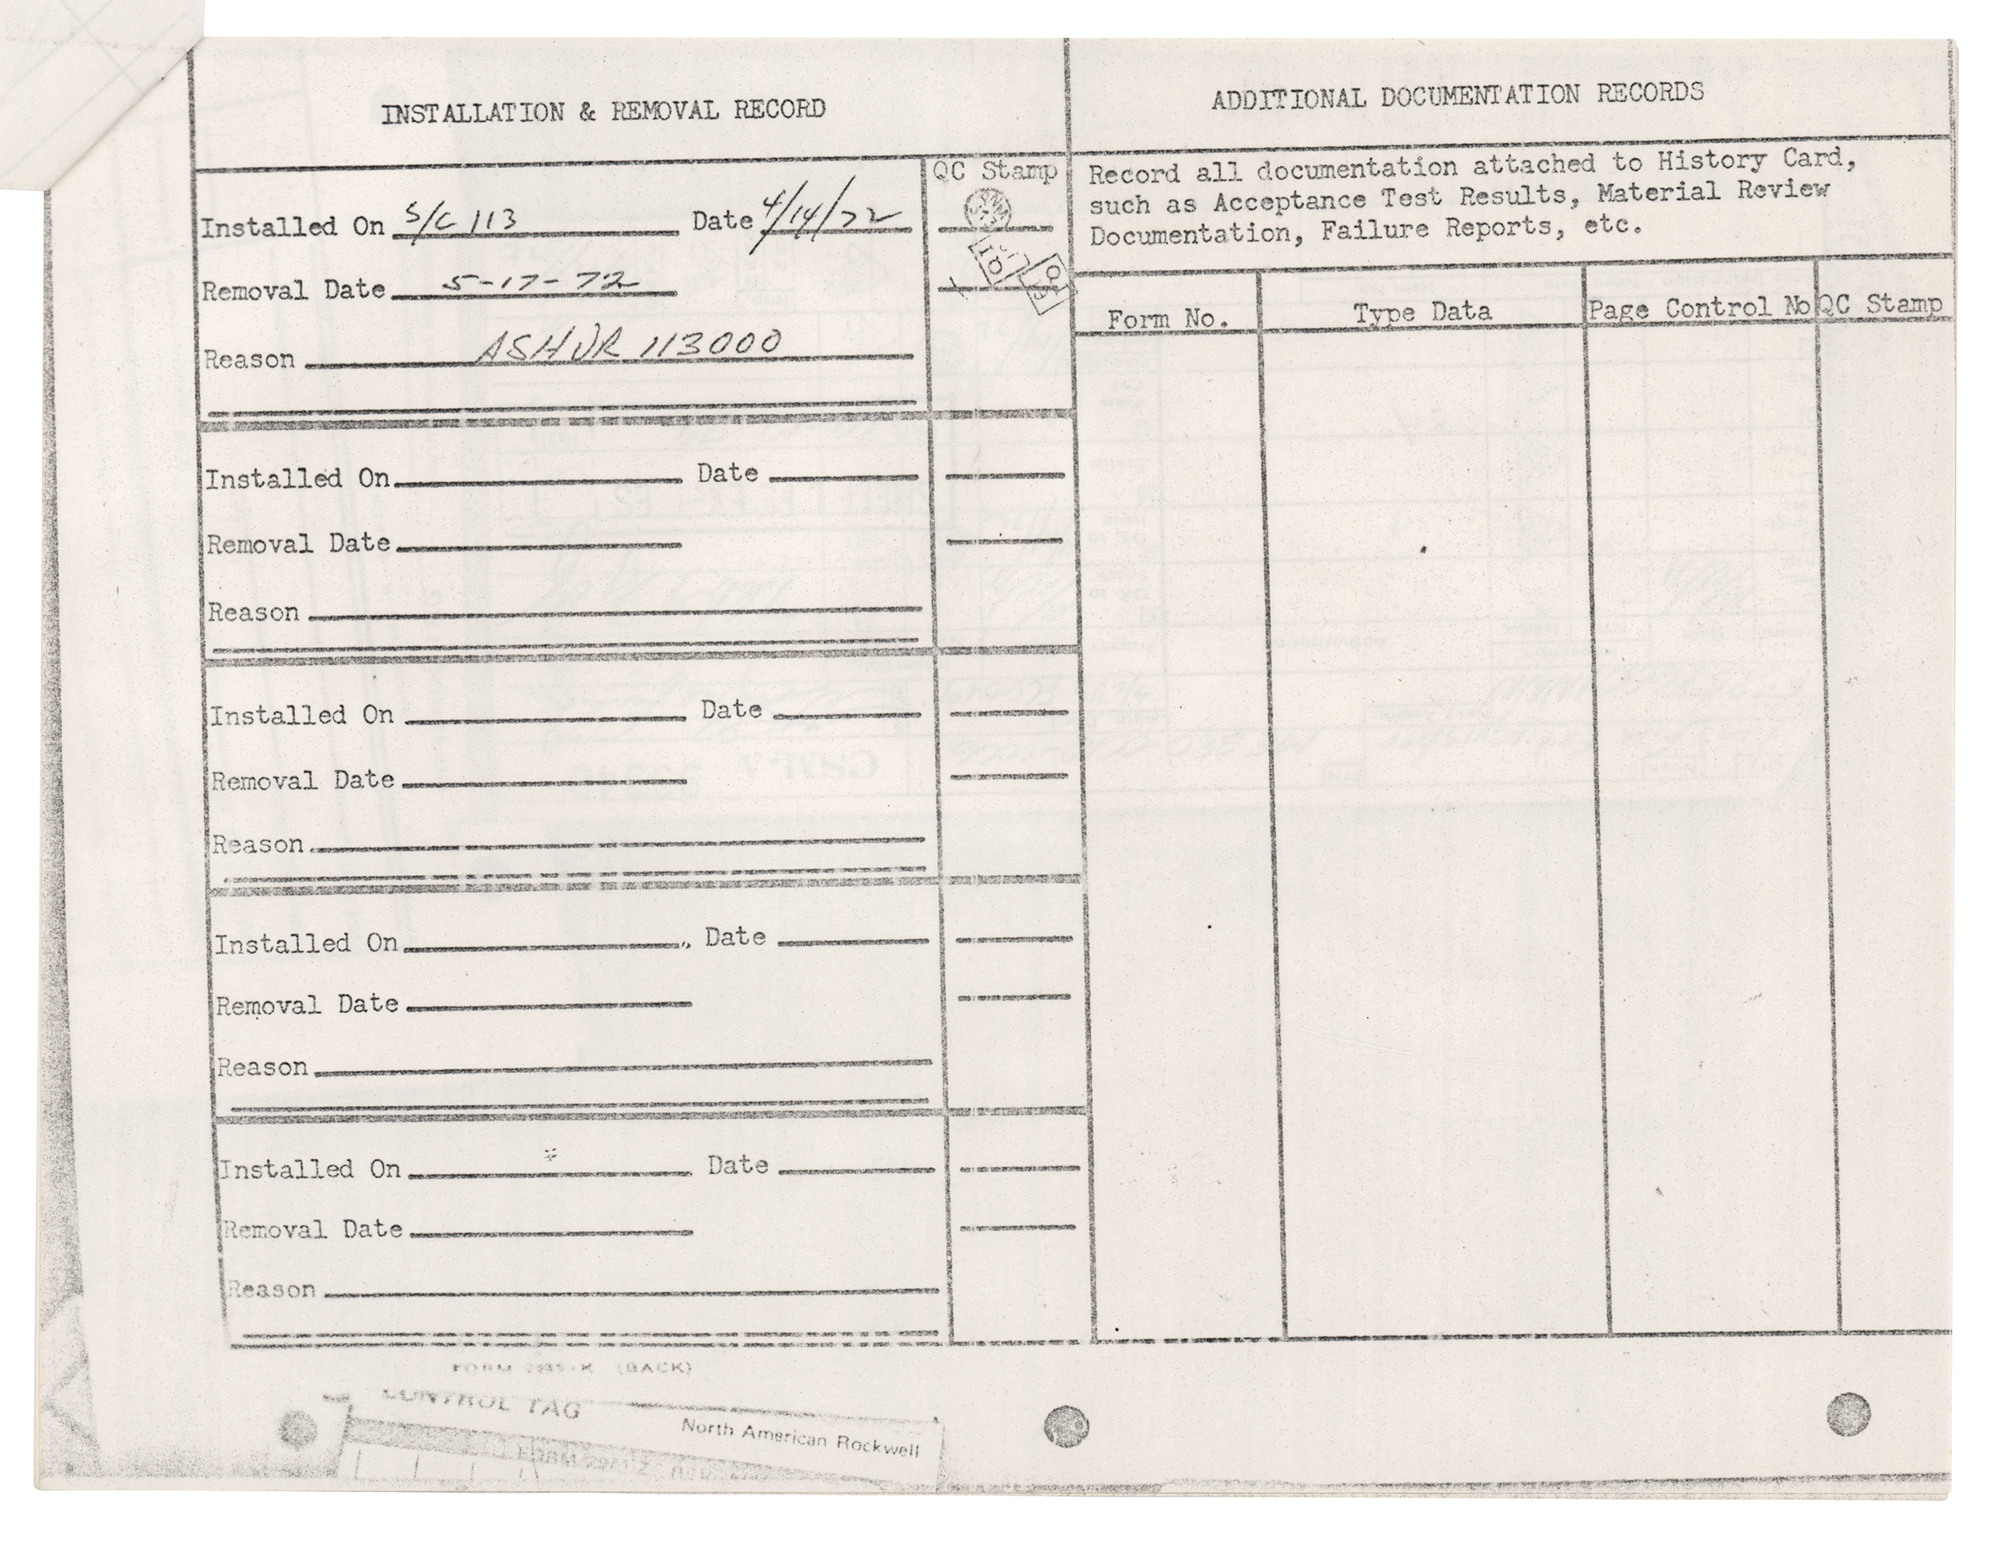 INSTALLATION & REMOVAL RECORD
QC Stamp
Installed On S/C 113 Date 4/14/72
Removal Date 5-17-72
Reason ASHUR 113000
Installed On Date
Removal Date
Reason
Installed On Date
Removal Date
Reason
Installed On Date
Removal Date
Reason
Installed On Date
Removal Date
Reason
ADDITIONAL DOCUMENTATION RECORDS
Record all documentation attached to History Card,
such as Acceptance Test Results, Material Review
Documentation, Failure Reports, etc.
Form No. Type Data Page Control No QC Stamp
FORM (BACK)
CONTROL TAG
North American Rockwell